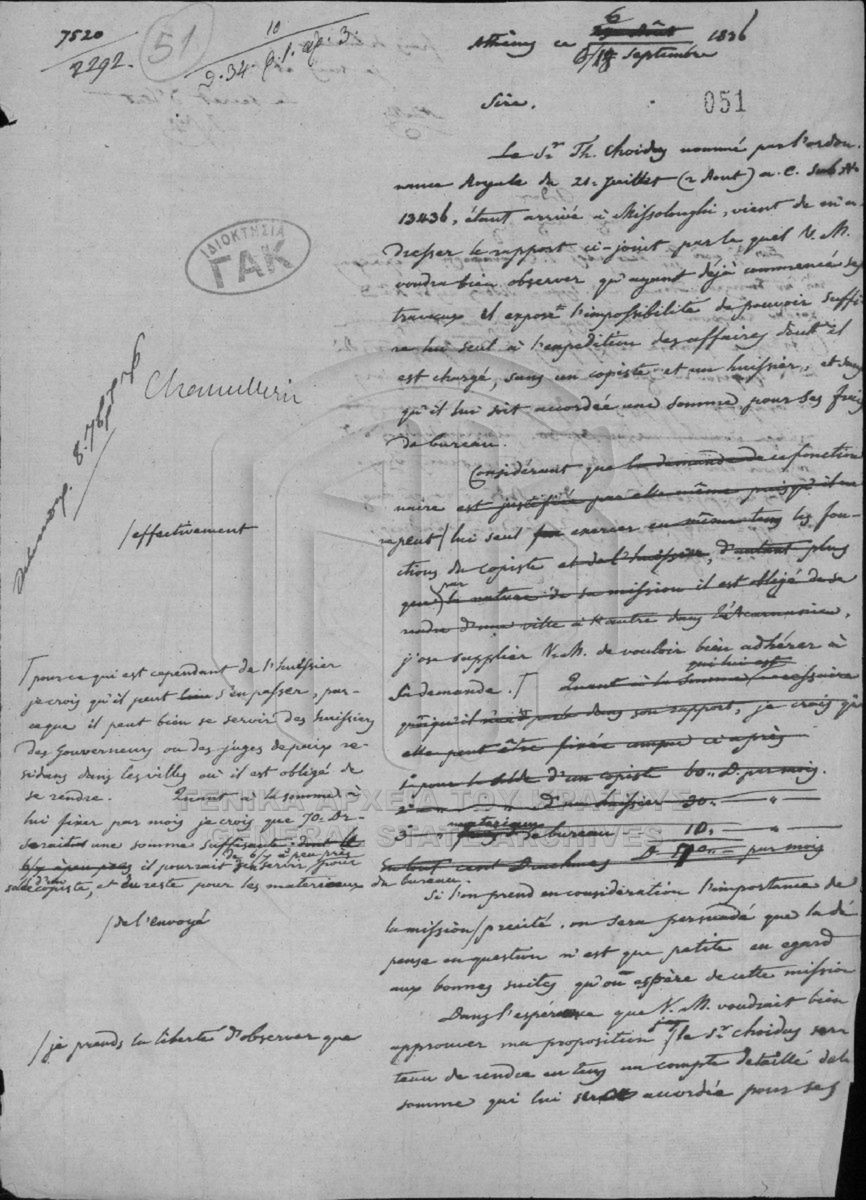 7520
2292.
51
10
9.34 φ. 1. αρ. 3.
Athènes ce 6 29 Août 1836
6/18 Septembre
Sire.
051
Le Sr. Th. Choidas nommé par l'ordon-
nance Royale du 21. Juillet (2 Aout) a. c. sub No
13436, étant arrivé à Missolonghi, vient de m'a-
dresser le rapport ci-joint par le quel V. M.
voudra bien observer qu'ayant déjà commencé ses
travaux il expose l'impossibilité de pouvoir suffi-
re lui seul à l'expédition des affaires dont il
est chargé, sans un copiste et un huissier, et sans
qu'il lui soit accordée une somme pour ses frais
de bureau.
ΙΔΙΟΚΤΗΣΙΑ
ΓΑΚ
Considérant que la demande de ce fonction
naire est justifiée par elle même puisqu'il ne
peut / lui seul exercer en même tems les fon-
ctions du copiste et de l'huissier, d'autant plus
que par la nature de sa mission il est obligé de se
rendre d'une ville à l'autre dans l'Acarnanie,
j'ose supplier V. M. de vouloir bien adhérer à
sa demande. Γ Quant à la somme qui lui est nécessaire
dans son rapport, je crois qu'
elle peut être fixée comme ci après
1° pour la solde d'un copiste 60 " D. par mois.
2° — " — " D'un huissier 30 " — " —
3 — materiaux de bureau 10 " — " —
En tout cent Drachmes D 70 " — par mois
/ effectivement
Γ pour ce qui est cependant de l'huissier
je crois qu'il peut s'en passer, par-
ceque il peut bien se servir des huissiers
des Gouverneurs ou des juges de paix re-
sidans dans les villes où il est obligé de
se rendre. Quant à la somme à
lui fixer par mois je crois que 70. Dr.
serait une somme suffisante dont le
6/7 à peu près il pourrait de 6/7 à peu près se servir pour
copiste, et du reste pour les materiaux du bureau.
Si l'on prend en considération l'importance de
la mission / précité, on sera persuadé que la dé
pense en question n'est que petite en egard
aux bonnes suites qu'on espère de cette mission
/ de l'envoyé
Dans l'espérance que V. M. voudrait bien
approuver ma proposition / le Sr. Choidas sera
tenu de rendre en tems un compte détaillé de la
somme qui lui sera accordée pour ses
/ je prends la liberté d'observer que
ΓΕΝΙΚΑ ΑΡΧΕΙΑ ΤΟΥ ΚΡΑΤΟΥΣ
GENERAL STATE ARCHIVES